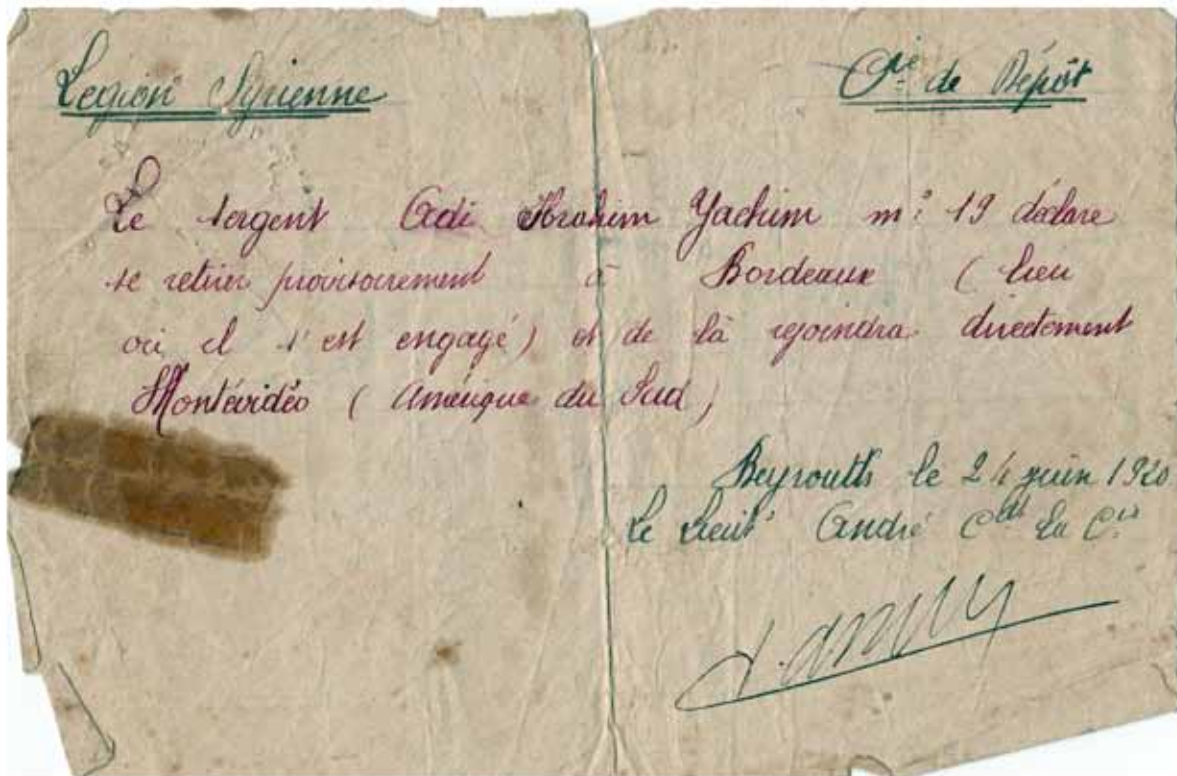 Légion Syrienne
Cie de Dépôt
Le sergent Adi Ibrahim Yachim mle 19 déclare
se retirer provisoirement à Bordeaux (lieu
où il s'est engagé) et de là rejoindra directement
Montévidéo (Amérique du Sud)
Beyrouth le 24 juin 1920
Le Lieut André Cdt La Cie